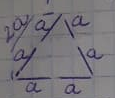 a a a
a a
a a